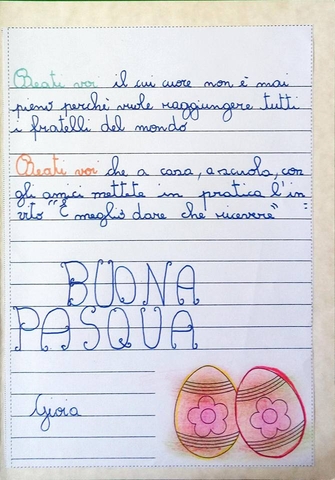 Beati voi il cui cuore non è mai
pieno perché vuole raggiungere tutti
i fratelli del mondo
Beati voi che a casa, a scuola, con
gli amici mettete in pratica l'in
vito "È meglio dare che ricevere"
BUONA
PASQUA
Gioia